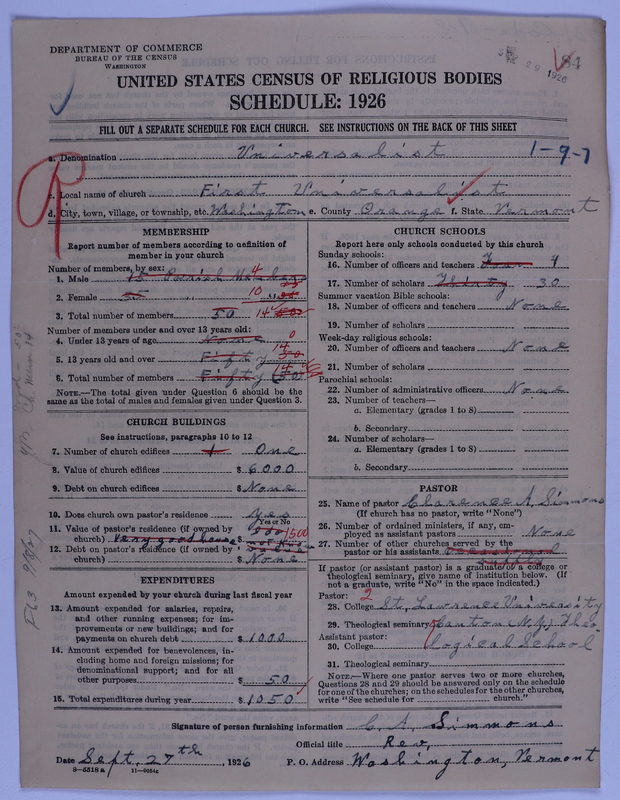 DEPARTMENT OF COMMERCE
BUREAU OF THE CENSUS
WASHINGTON
29 1926
UNITED STATES CENSUS OF RELIGIOUS BODIES
SCHEDULE: 1926
FILL OUT A SEPARATE SCHEDULE FOR EACH CHURCH. SEE INSTRUCTIONS ON THE BACK OF THIS SHEET
a. Denomination Universalist 1-9-7
c. Local name of church First Universalist
d. City, town, village, or township, etc. Washington e. County Orange f. State Vermont
MEMBERSHIP
Report number of members according to definition of member in your church
Number of members, by sex:
1. Male 15 Parish Members 4
2. Female 35 " " 10
3. Total number of members 50 14
Number of members under and over 13 years old:
4. Under 13 years of age None 0
5. 13 years old and over Fifty 14
6. Total number of members Fifty 14
NOTE.—The total given under Question 6 should be the same as the total of males and females given under Question 3.
CHURCH BUILDINGS
See instructions, paragraphs 10 to 12
7. Number of church edifices 1 One
8. Value of church edifices $ 6000
9. Debt on church edifices $ None
10. Does church own pastor's residence yes
Yes or No
11. Value of pastor's residence (if owned by church) Very good house $ 1500
12. Debt on pastor's residence (if owned by church) $ None
EXPENDITURES
Amount expended by your church during last fiscal year
13. Amount expended for salaries, repairs, and other running expenses; for improvements or new buildings; and for payments on church debt $ 1000
14. Amount expended for benevolences, including home and foreign missions; for denominational support; and for all other purposes $ 50
15. Total expenditures during year $ 1050
CHURCH SCHOOLS
Report here only schools conducted by this church
Sunday schools:
16. Number of officers and teachers Four 4
17. Number of scholars Thirty 30
Summer vacation Bible schools:
18. Number of officers and teachers None
19. Number of scholars
Week-day religious schools:
20. Number of officers and teachers None
21. Number of scholars
Parochial schools:
22. Number of administrative officers None
23. Number of teachers—
a. Elementary (grades 1 to 8)
b. Secondary
24. Number of scholars—
a. Elementary (grades 1 to 8)
b. Secondary
PASTOR
25. Name of pastor Clarence A. Simmons
(If church has no pastor, write "None")
26. Number of ordained ministers, if any, employed as assistant pastors None
27. Number of other churches served by the pastor or his assistants
If pastor (or assistant pastor) is a graduate of a college or theological seminary, give name of institution below. (If not a graduate, write "No" in the space indicated.)
Pastor: 2
28. College St. Lawrence University
29. Theological seminary Canton N.Y. Theo
Assistant pastor:
30. College logical School
31. Theological seminary
NOTE.—Where one pastor serves two or more churches, Questions 28 and 29 should be answered only on the schedule for one of the churches; on the schedules for the other churches, write "See schedule for church."
Signature of person furnishing information C. A. Simmons
Official title Rev,
Date Sept. 27th, 1926 P. O. Address Washington, Vermont
8-5518 a 11-9064c